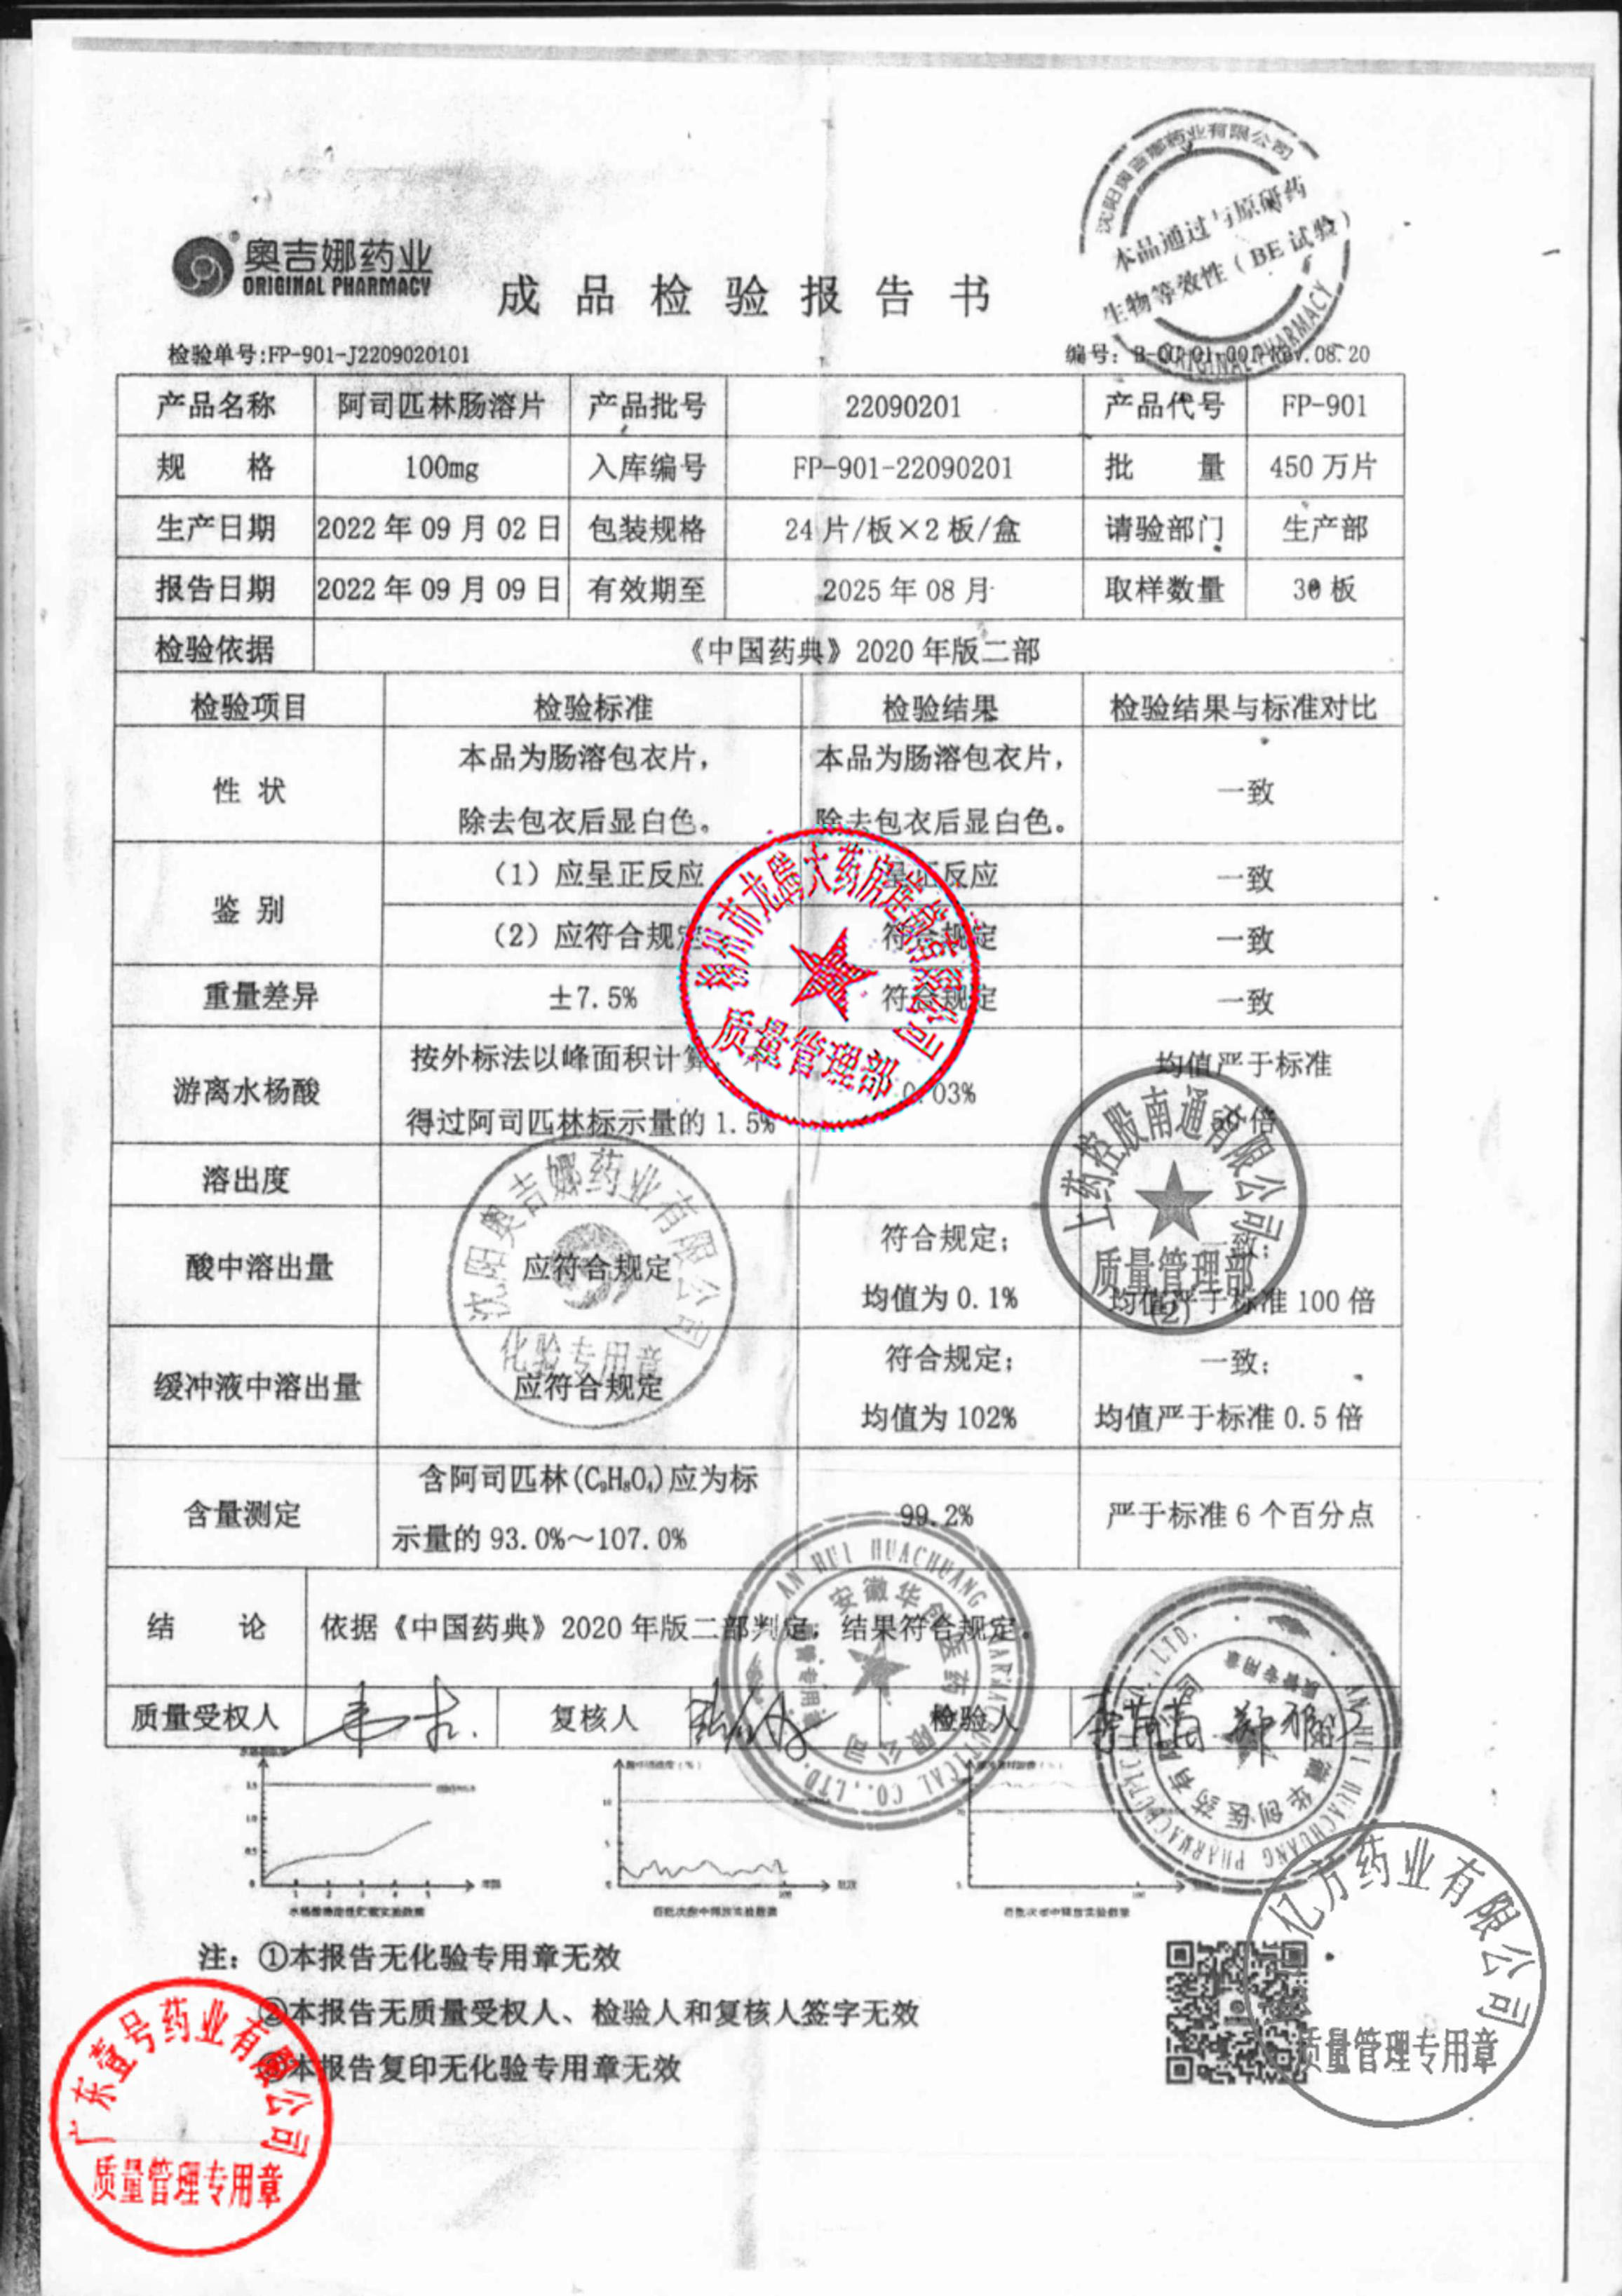 奥吉娜药业
ORIGINAL PHARMACY
成品检验报告书
沈阳奥吉娜药业有限公司
本品通过与原研药
生物等效性（BE试验）
ORIGINAL PHARMACY
检验单号:FP-901-J2209020101
编号: Rev.08.20
产品名称 阿司匹林肠溶片 产品批号 22090201 产品代号 FP-901
规 格 100mg 入库编号 FP-901-22090201 批 量 450万片
生产日期 2022年09月02日 包装规格 24片/板×2板/盒 请验部门 生产部
报告日期 2022年09月09日 有效期至 2025年08月 取样数量 30板
检验依据 《中国药典》2020年版二部
检验项目 检验标准 检验结果 检验结果与标准对比
性 状 本品为肠溶包衣片，除去包衣后显白色。 本品为肠溶包衣片，除去包衣后显白色。 一致
鉴 别 （1）应呈正反应 呈正反应 一致
（2）应符合规定 符合规定 一致
重量差异 ±7.5% 符合规定 一致
游离水杨酸 按外标法以峰面积计算，不得过阿司匹林标示量的1.5% 0.03% 均值严于标准50倍
溶出度
酸中溶出量 应符合规定 符合规定；均值为0.1% 一致；均值严于标准100倍
缓冲液中溶出量 应符合规定 符合规定；均值为102% 一致；均值严于标准0.5倍
含量测定 含阿司匹林(C₉H₈O₄)应为标示量的93.0%～107.0% 99.2% 严于标准6个百分点
结 论 依据《中国药典》2020年版二部判定，结果符合规定。
质量受权人 复核人 检验人
市龙腾大药房连锁有限公司
质量管理部
上药控股南通有限公司
质量管理部
(2)
沈阳奥吉娜药业有限公司
化验专用章
AN HUI HUACHUANG PHARMACEUTICAL CO.,LTD.
安徽华创医药有限公司
AN HUI HUACHUANG PHARMACEUTICAL CO.,LTD.
安徽华创医药有限公司
质管专用章
注：①本报告无化验专用章无效
②本报告无质量受权人、检验人和复核人签字无效
③本报告复印无化验专用章无效
广东壹号药业有限公司
质量管理专用章
亿方药业有限公司
质量管理专用章